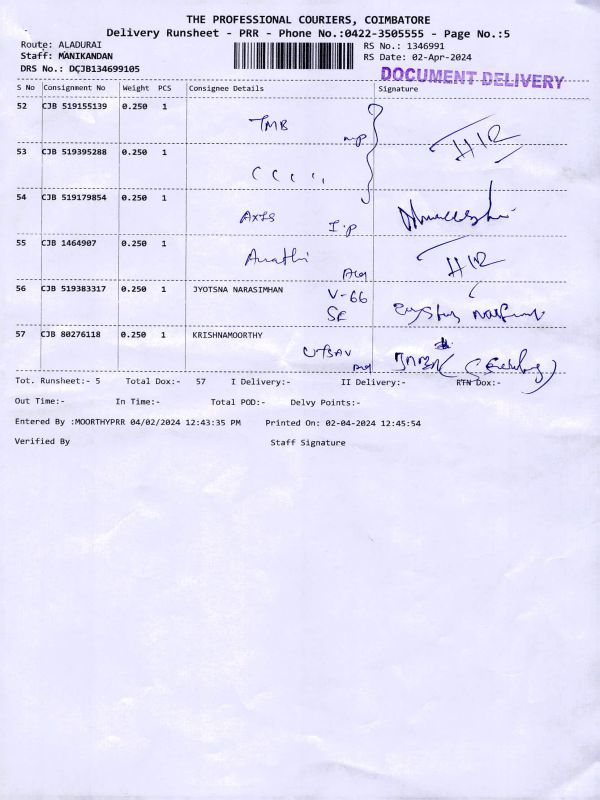 THE PROFESSIONAL COURIERS, COIMBATORE
Delivery Runsheet - PRR - Phone No.:0422-3505555 - Page No.:5
Route: ALADURAI RS No.: 1346991
Staff: MANIKANDAN RS Date: 02-Apr-2024
DRS No.: DCJB134699105
DOCUMENT DELIVERY
S No Consignment No Weight PCS Consignee Details Signature
52 CJB 519155139 0.250 1
TMB
53 CJB 519395288 0.250 1
54 CJB 519179854 0.250 1
Axis
55 CJB 1464907 0.250 1
56 CJB 519383317 0.250 1 JYOTSNA NARASIMHAN V-66
57 CJB 80276118 0.250 1 KRISHNAMOORTHY
Tot. Runsheet:- 5 Total Dox:- 57 I Delivery:- II Delivery:- RTN Dox:-
Out Time:- In Time:- Total POD:- Delvy Points:-
Entered By :MOORTHYPRR 04/02/2024 12:43:35 PM Printed On: 02-04-2024 12:45:54
Verified By Staff Signature